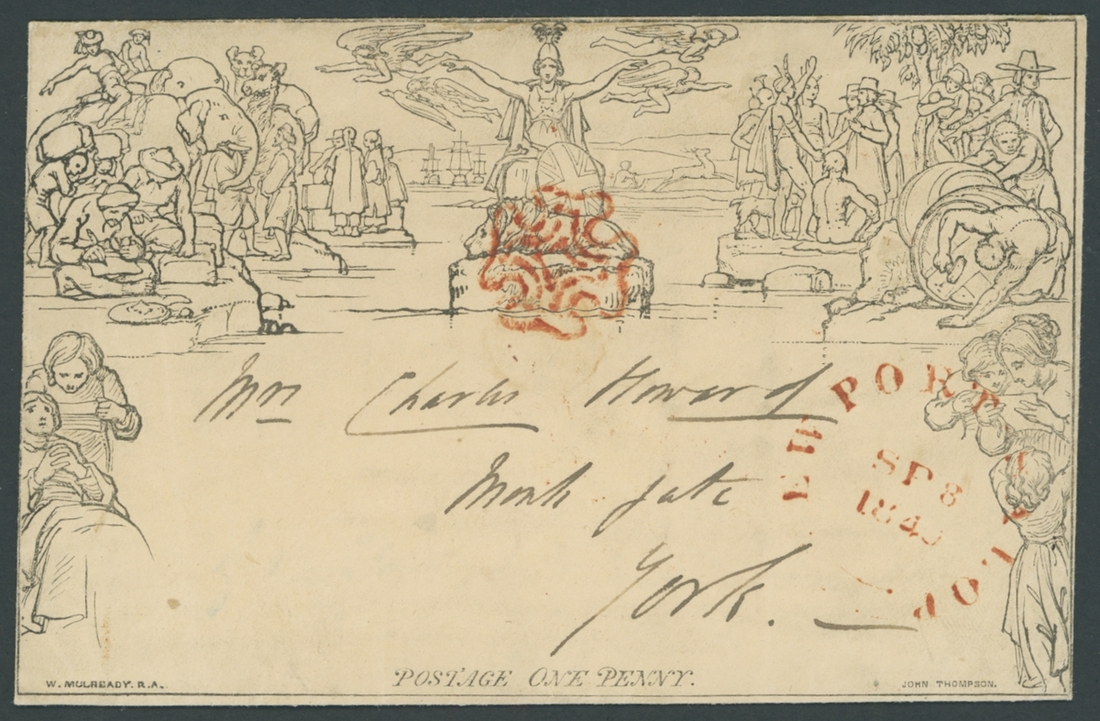 Mrs Charles Howard
Monk gate
York.
EWPORT
SP 8
184
POSTAGE ONE PENNY.
W. MULREADY. R.A.
JOHN THOMPSON.